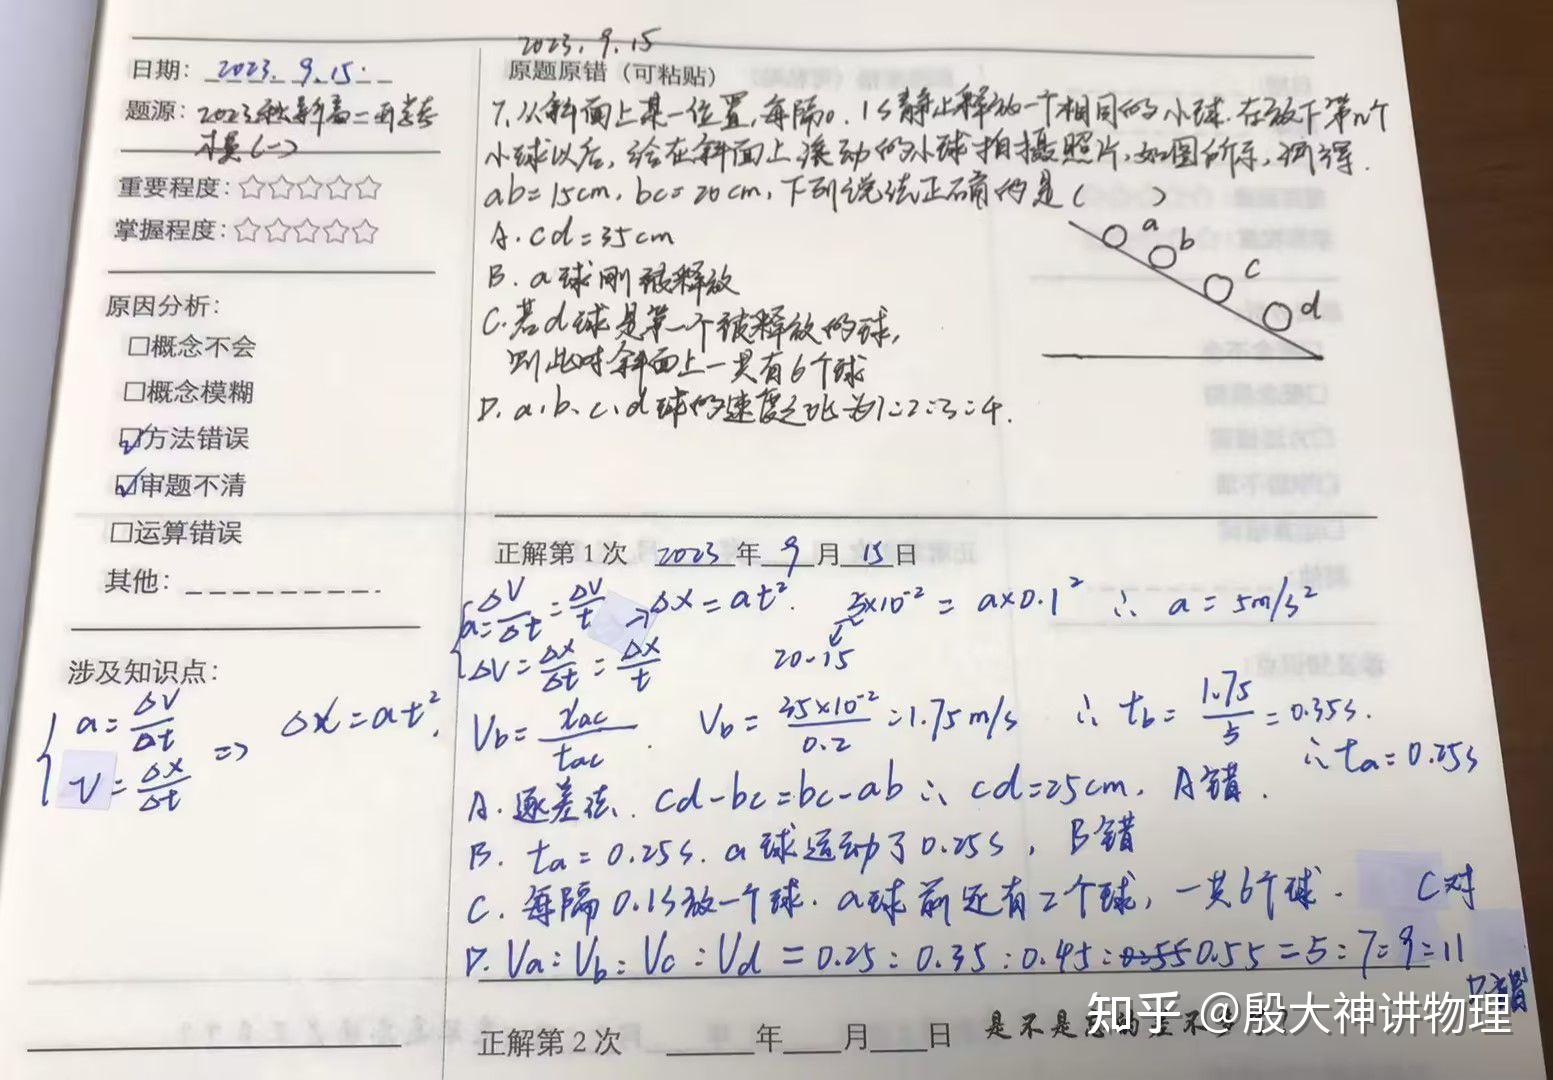 日期: 2023. 9. 15.
题源:
重要程度: ☆☆☆☆☆
掌握程度: ☆☆☆☆☆
原因分析:
□概念不会
□概念模糊
☑方法错误
☑审题不清
□运算错误
其他:
涉及知识点:
a = ΔV/Δt
V = Δx/Δt
=> Δx = at².
2023. 9. 15
原题原错（可粘贴）
7. 从斜面上某一位置,每隔0.1s静止释放一个相同的小球.在放下第n个
小球以后,给在斜面上滚动的小球拍摄照片,如图所示,测得.
ab=15cm, bc=20cm,下列说法正确的是( )
A. cd=35cm
B. a球刚被释放
C. 若d球是第一个被释放的球,
则此时斜面上一共有6个球
D. a、b、c、d球的速度之比为1:2:3:4.
a
b
c
d
正解第1次 2023年9月15日
a = ΔV/Δt = ΔV/t => Δx = at². 5×10⁻² = a×0.1² ∴ a = 5m/s²
ΔV = Δx/Δt = Δx/t 20-15
Vb = xac/tac . Vb = 35×10⁻²/0.2 = 1.75m/s ∴ tb = 1.75/5 = 0.35s.
∴ ta = 0.25s
A. 逐差法. cd-bc=bc-ab ∴ cd=25cm, A错.
B. ta = 0.25s. a球运动了0.25s, B错
C. 每隔0.1s放一个球. a球前还有2个球, 一共6个球. C对
D. Va:Vb:Vc:Vd = 0.25:0.35:0.45:0.55 = 5:7:9:11
D错
正解第2次 年 月 日
知乎 @殷大神讲物理